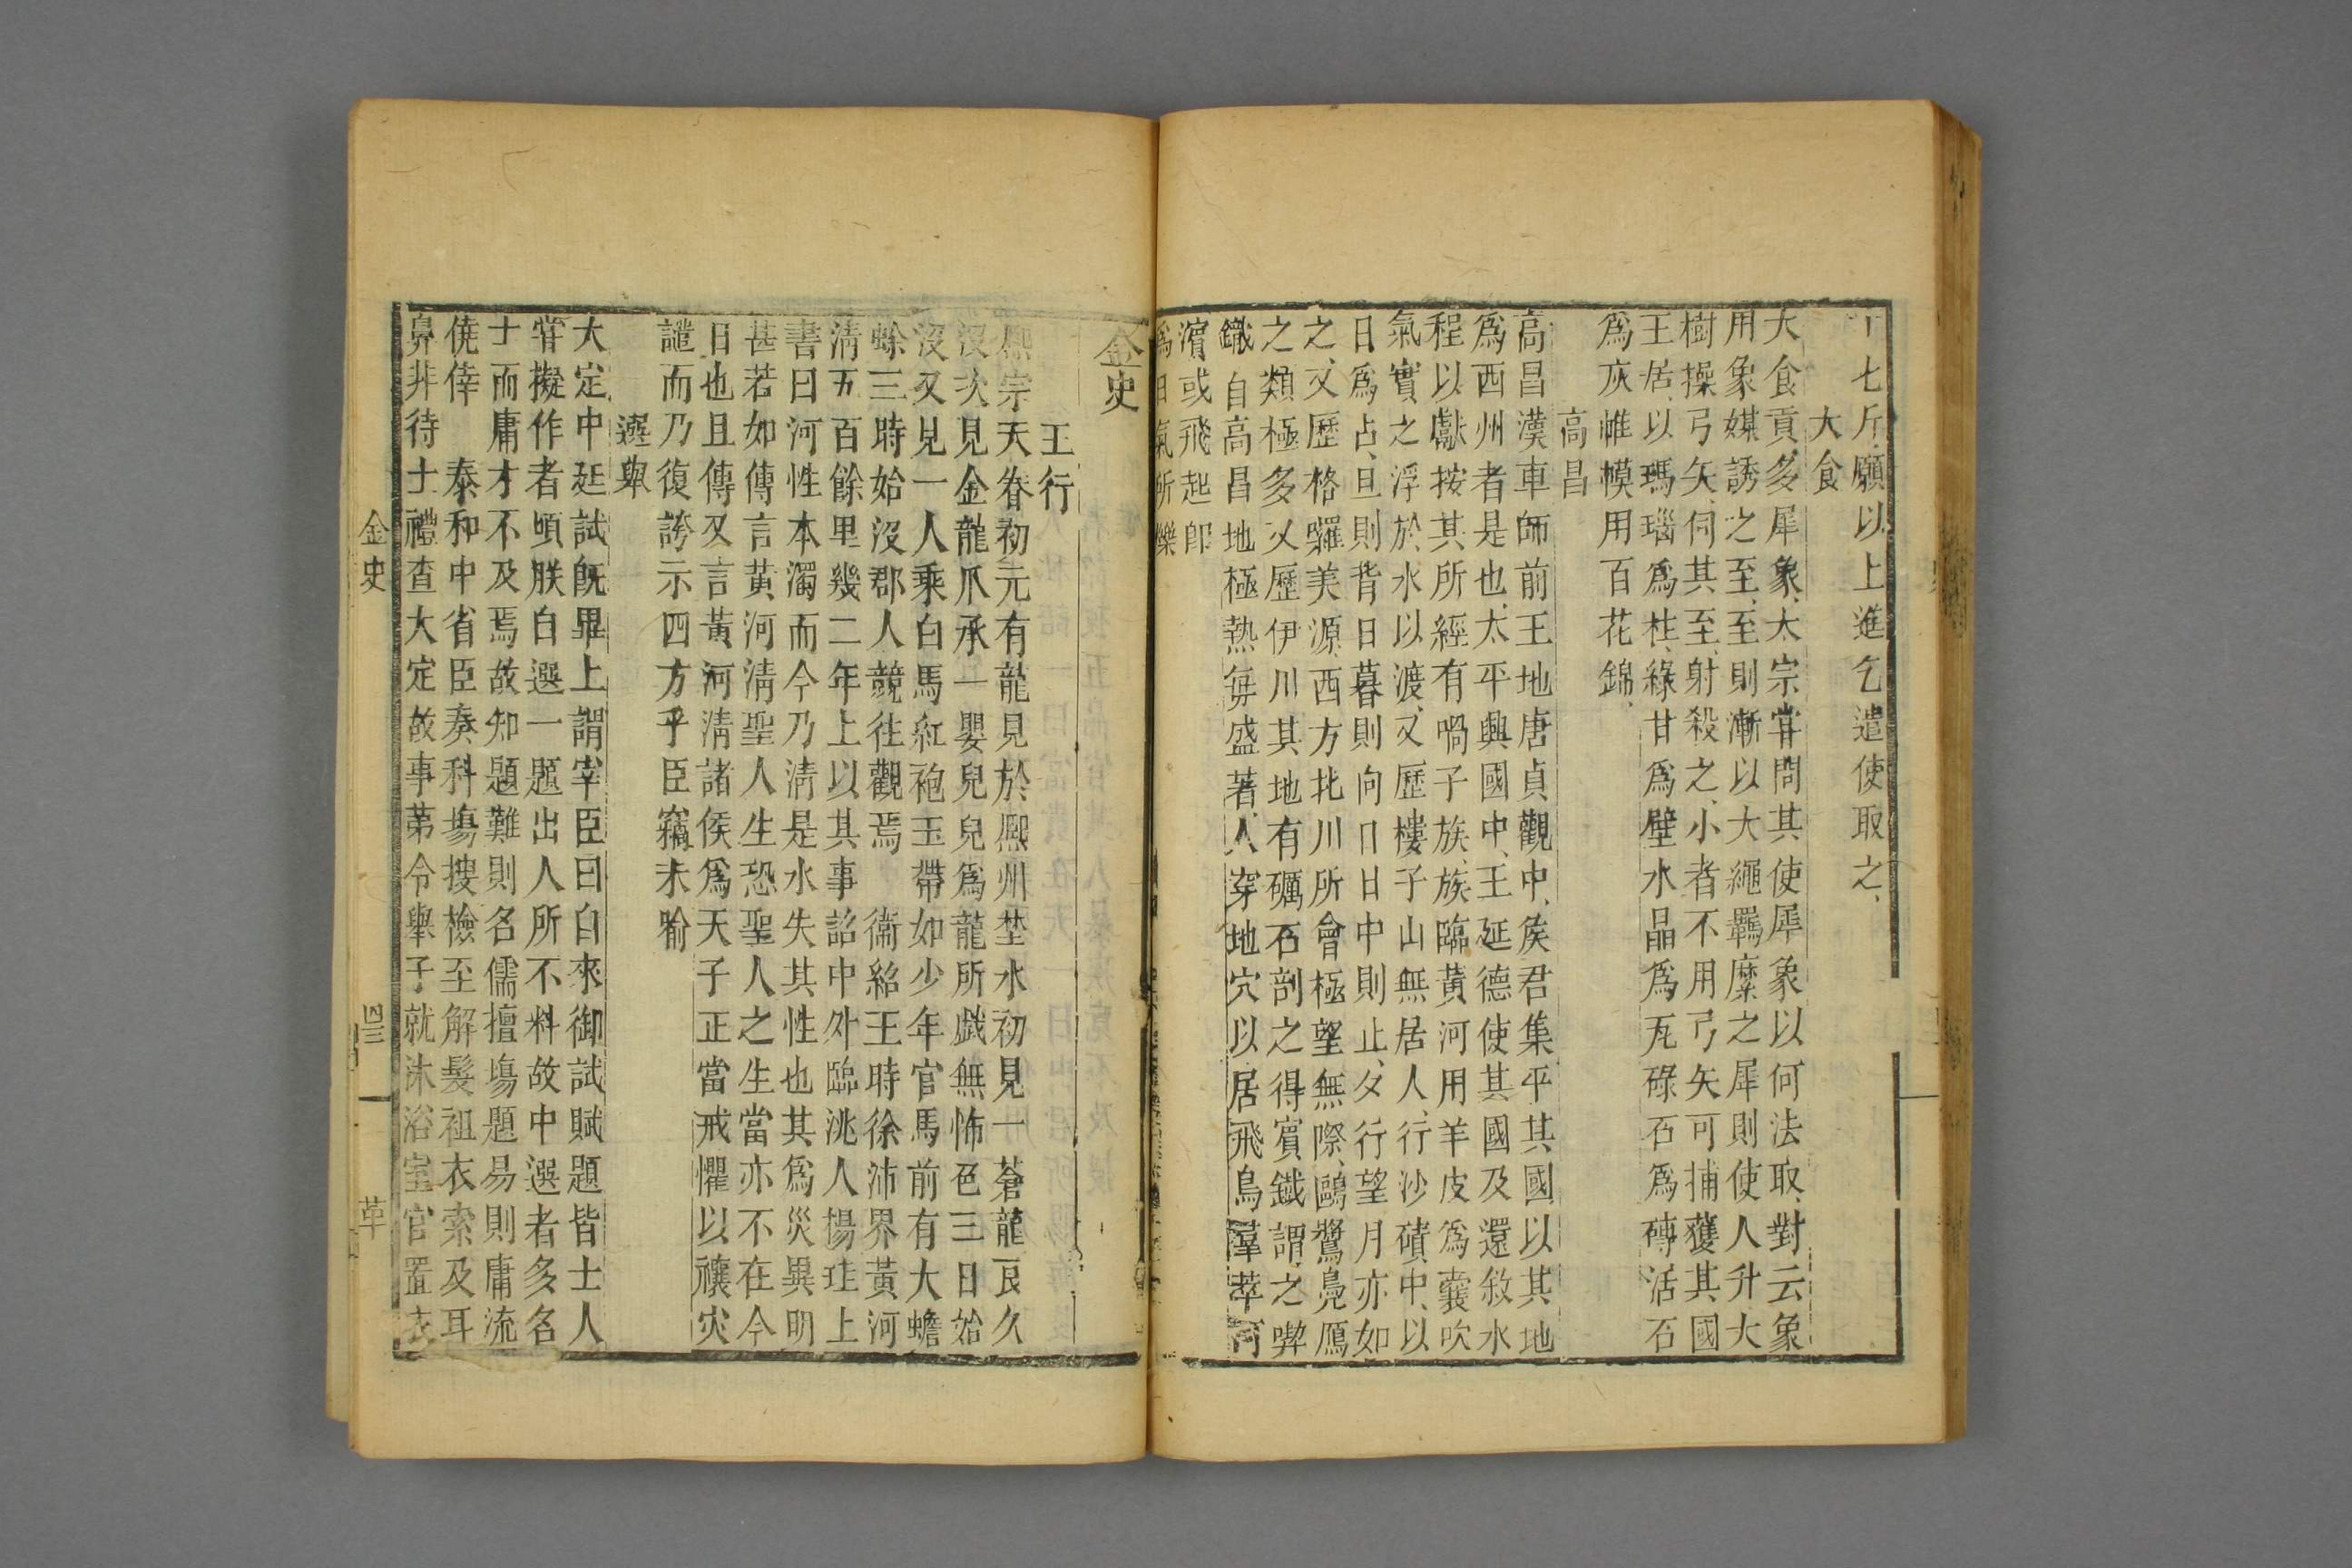 十七斤願以上進乞遣使取之
大食
大食貢多犀象太宗甞問其使犀象以何法取對云象
用象媒誘之至至則漸以大繩羈縻之犀則使人升大
樹操弓矢伺其至射殺之小者不用弓矢可捕獲其國
王居以瑪瑙爲柱綠甘爲壁水晶爲瓦碌石爲磚活石
爲灰帷幙用百花錦
高昌
高昌漢車師前王地唐貞觀中侯君集平其國以其地
爲西州者是也太平興國中王延德使其國及還敘水
程以獻按其所經有喎子族族臨黃河用羊皮爲囊吹
氣實之浮於水以渡又歷樓子山無居人行沙磧中以
日爲占旦則背日暮則向日日中則止夕行望月亦如
之又歷格囉美源西方北川所會極望無際鷗鷺鳧鴈
之類極多又歷伊川其地有礪石剖之得賓鐵謂之喫
鐵自高昌地極熱每盛暑人穿地穴以居飛鳥羣萃河
濱或飛起即
爲日氣所爍
金史
五行
熙宗天眷初元有龍見於熙州埜水初見一蒼龍良久
沒次見金龍爪承一嬰兒兒爲龍所戲無怖色三日始
沒又見一人乘白馬紅袍玉帶如少年官馬前有大蟾
蜍三時始沒郡人競往觀焉　衞紹王時徐沛界黃河
淸五百餘里幾二年上以其事詔中外臨洮人楊珪上
書曰河性本濁而今乃淸是水失其性也其爲災異明
甚若如傳言黃河淸聖人生恐聖人之生當亦不在今
日也且傳又言黃河淸諸侯爲天子正當戒懼以禳災
譴而乃復誇示四方乎臣竊未喻
選舉
大定中廷試旣畢上謂宰臣曰自來御試賦題皆士人
甞擬作者頃朕自選一題出人所不料故中選者多名
士而庸才不及焉故知題難則名儒擅塲題易則庸流
僥倖　泰和中省臣奏科塲搜檢至解髮袒衣索及耳
鼻非待士禮查大定故事第令舉子就沐浴室官置衣
金史
四三
革